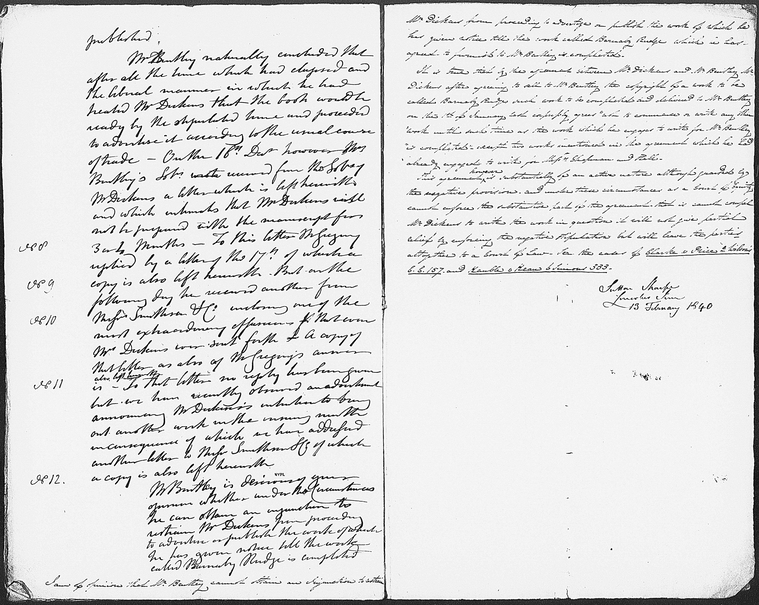 published.
Mr Bentley naturally concluded that
after all the time which had elapsed and
the liberal manner in which he had
treated Mr Dickens that the book would be
ready by the stipulated time and proceeded
to advertise it according to the usual course
of trade – On the 16th Decr however Mr
Bentley's Solrs received from the Solrs of
No 8
Mr Dickens a letter which is left herewith
and which intimates that Mr Dickens will
not be prepared with the manuscript for
3 or 4 Months – To this letter Mr Gregory
No 9
replied by a letter of the 17th of which a
copy is also left herewith. But on the
following day he received another from
No 10
Messrs Smithson & Co enclosing one of the
most extraordinary effusions that ever
Mr Dickens ever sent forth & A copy of
that letter as also of Mr Gregory's answer
No 11
also left herewith
is – To that letter no reply has been given
but we have recently observed an advertisement
announcing Mr Dickens's intention to bring
out another work in the ensuing month
in consequence of which we have addressed
another letter to Messrs Smithson & Co of which
No 12.
a copy is also left herewith
Mr Bentley is desirous of your
opinion whether under the Circumstances
he can obtain an injunction to
restrain Mr Dickens from proceeding
to advertise or publish the work of which
he has given notice till the work
called Barnaby Rudge is completed
I am of opinion that Mr Bentley cannot obtain an injunction to restrain
Mr Dickens from proceeding to advertise or publish the work of which he
has given notice till the work called Barnaby Rudge which he has
agreed to furnish to Mr Bentley is completed.
It is true that by the agreement between Mr Dickens and Mr Bentley Mr
Dickens after agreeing to sell to Mr Bentley the copyright for a work to be
called Barnaby Rudge such work to be completed and delivered to Mr Bentley
on the 1st of January last expressly agrees "not to commence or write any other
work until such time as the work which he engages to write for Mr Bentley
is completed" except two works mentioned in the agreement which he had
already engaged to write for Messrs Chapman and Hall.
This agreement is however substantially for an active nature although guarded by
the negative provision. and under these circumstances as a Court of Equity
cannot enforce the substantial part of the agreement that is cannot compel
Mr Dickens to write the work in question it will not give partial
relief by enforcing the negative stipulation but will leave the parties
altogether to a Court of Law. See the cases of Clarke v Price 2 Wilson's
C. C. 157. and Kemble v Kean 6 Simons 333.
Sutton Sharpe
Lincolns Inn
13 February 1840